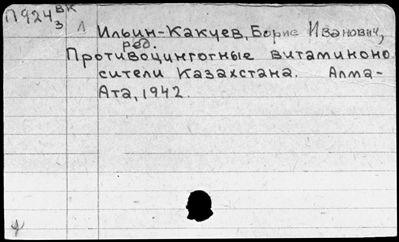 П924 ВК
3 Л
Ильин-Какуев, Борис Иванович,
ред.
Противоцинготные витаминоно
сители Казахстана. Алма-
Ата, 1942.